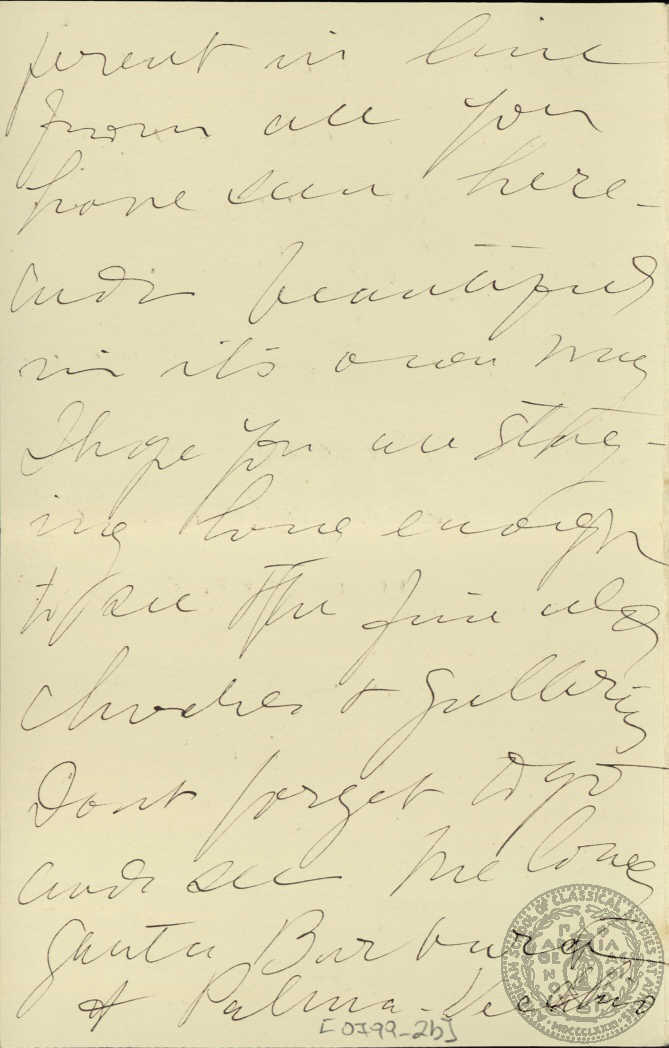 ferent in line
from all you
have seen here -
and beautiful
in it's own way
I hope you are stay-
ing long enough
to see the fine old
churches & galleries
Dont forget to go
and see the lovely
Santa Barbara
of Palma-Vecchio
[0799-2b]